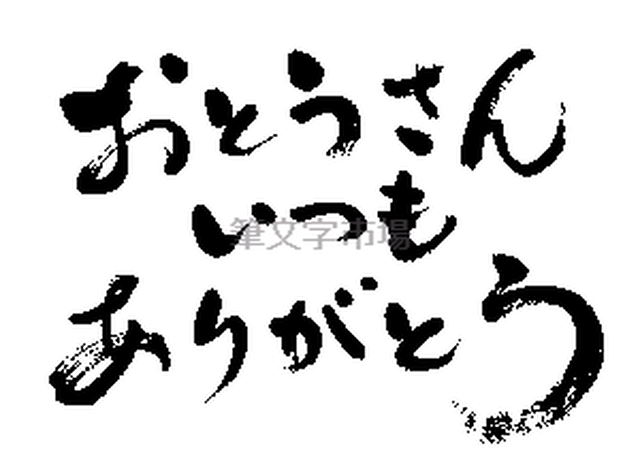 おとうさん
いつも
筆文字市場
ありがとう